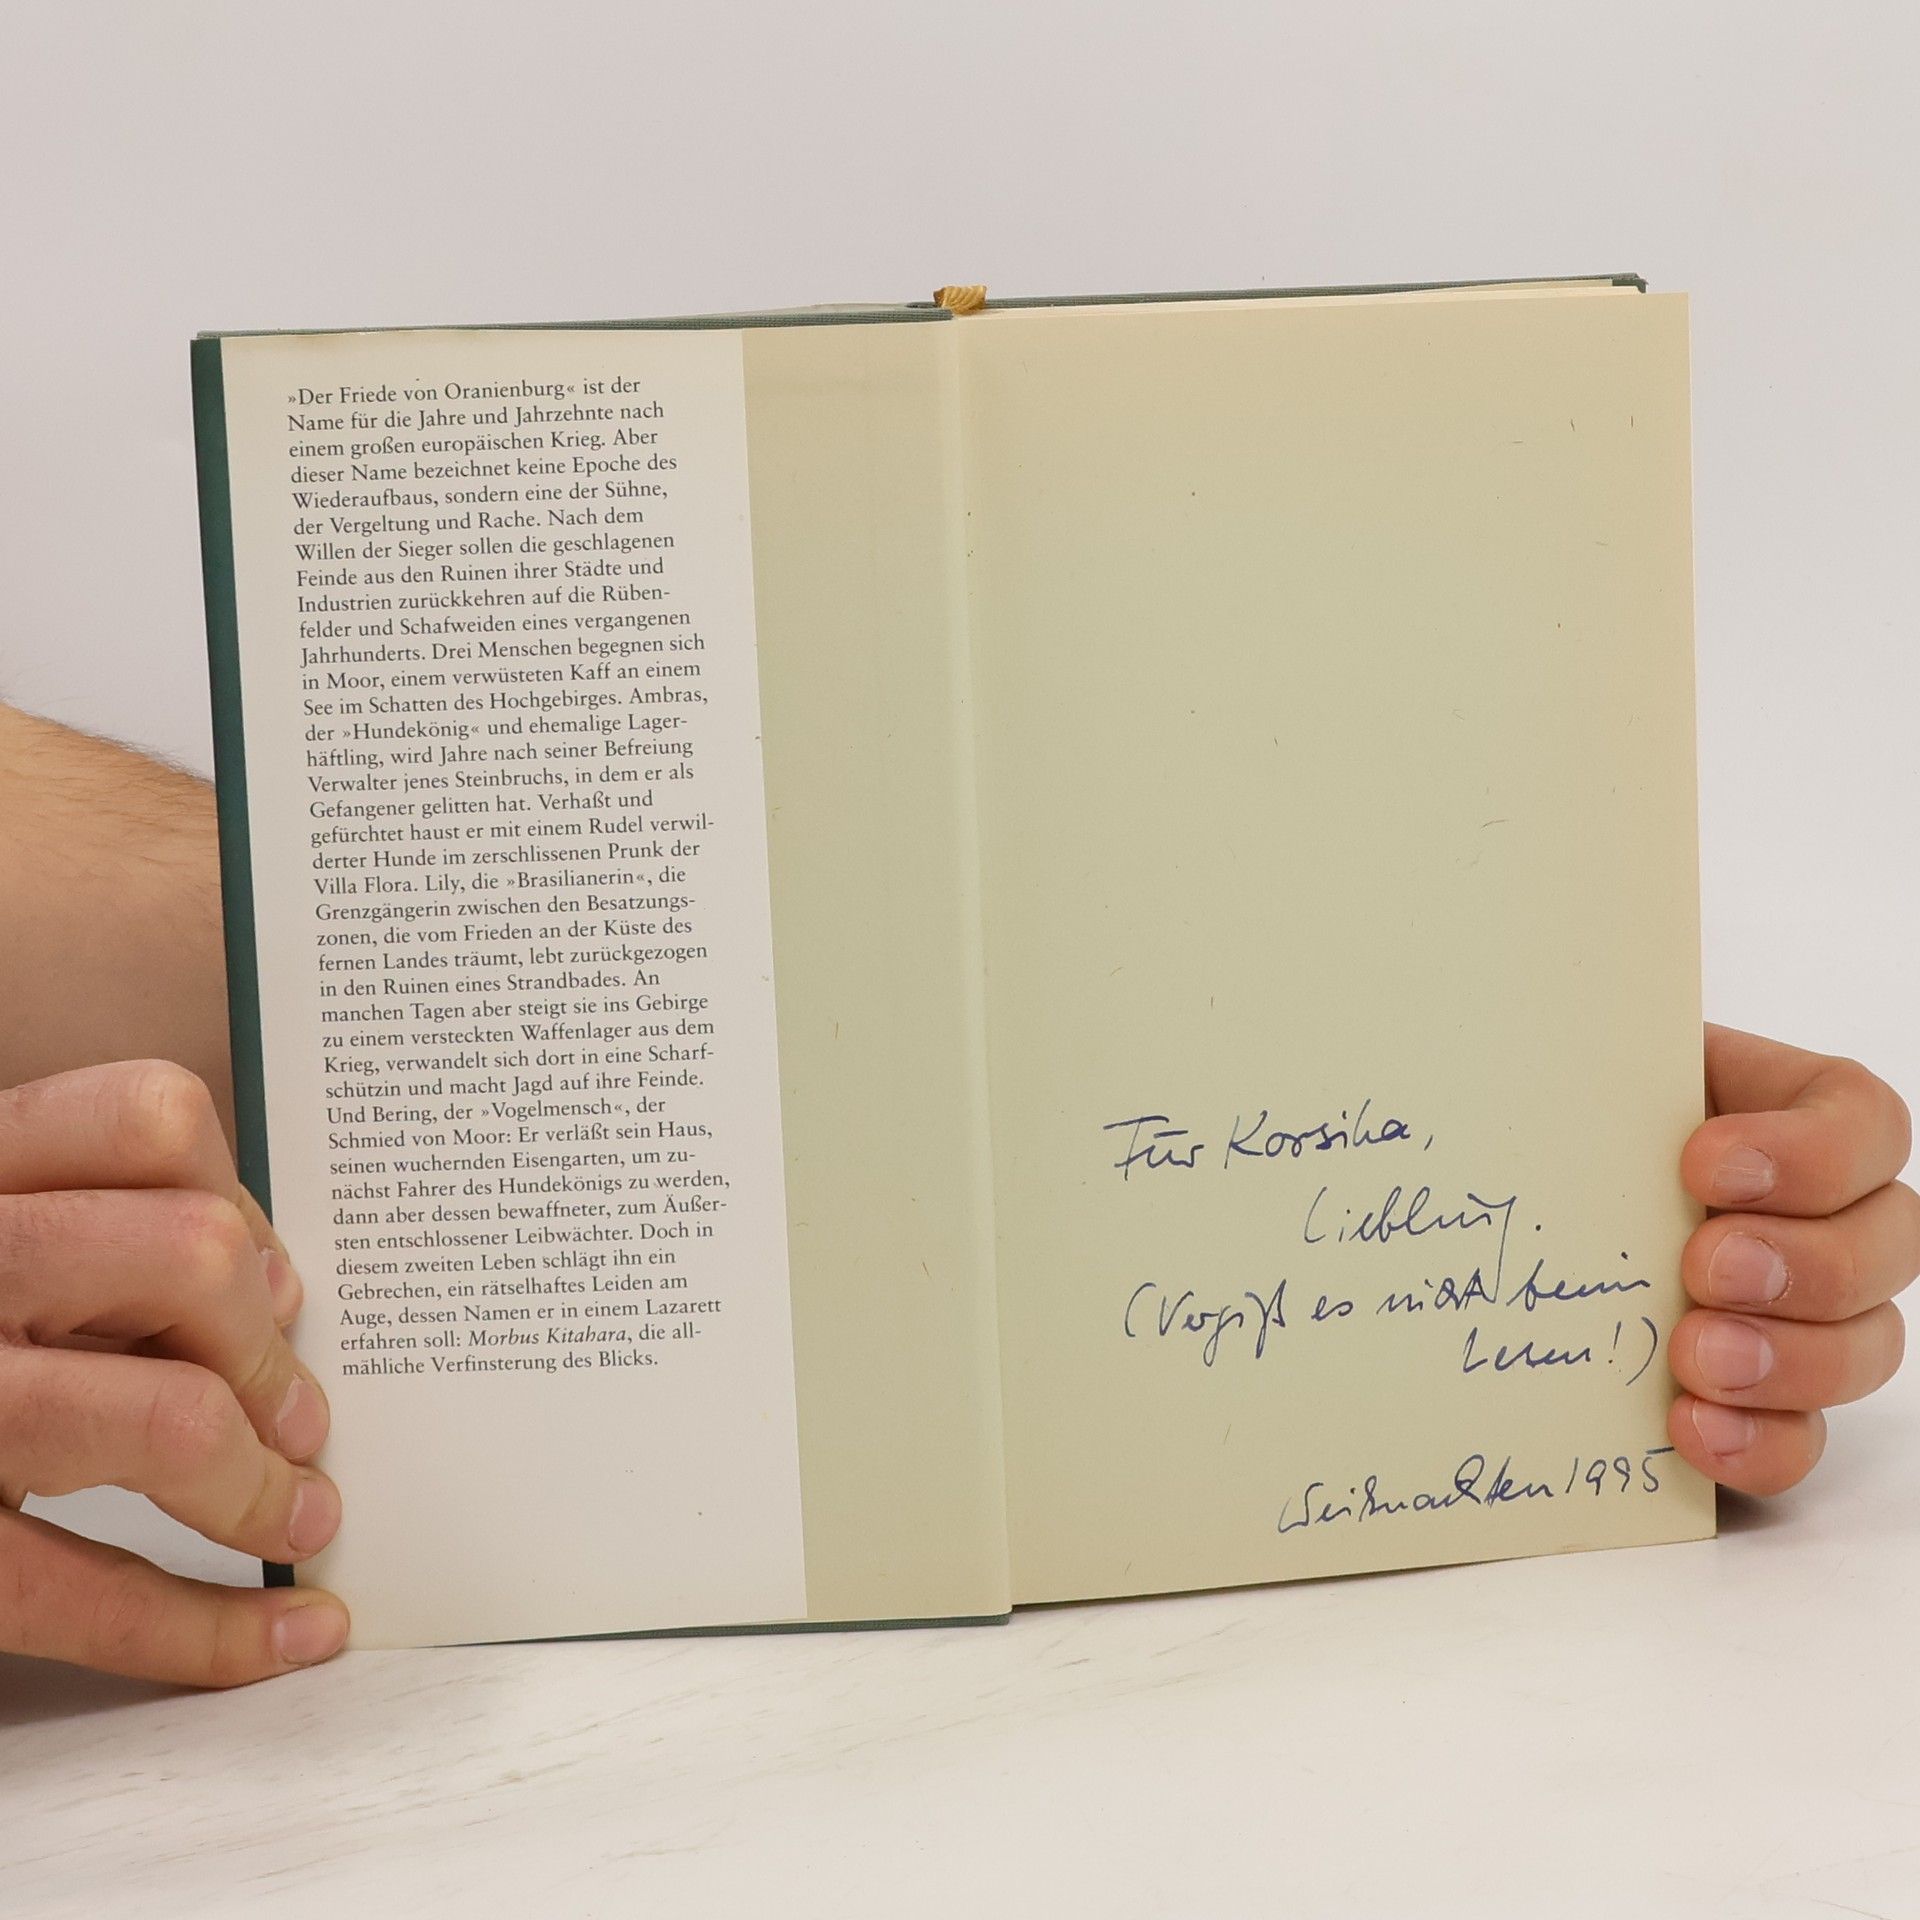 »Der Friede von Oranienburg« ist der
Name für die Jahre und Jahrzehnte nach
einem großen europäischen Krieg. Aber
dieser Name bezeichnet keine Epoche des
Wiederaufbaus, sondern eine der Sühne,
der Vergeltung und Rache. Nach dem
Willen der Sieger sollen die geschlagenen
Feinde aus den Ruinen ihrer Städte und
Industrien zurückkehren auf die Rüben-
felder und Schafweiden eines vergangenen
Jahrhunderts. Drei Menschen begegnen sich
in Moor, einem verwüsteten Kaff an einem
See im Schatten des Hochgebirges. Ambras,
der »Hundekönig« und ehemalige Lager-
häftling, wird Jahre nach seiner Befreiung
Verwalter jenes Steinbruchs, in dem er als
Gefangener gelitten hat. Verhaßt und
gefürchtet haust er mit einem Rudel verwil-
derter Hunde im zerschlissenen Prunk der
Villa Flora. Lily, die »Brasilianerin«, die
Grenzgängerin zwischen den Besatzungs-
zonen, die vom Frieden an der Küste des
fernen Landes träumt, lebt zurückgezogen
in den Ruinen eines Strandbades. An
manchen Tagen aber steigt sie ins Gebirge
zu einem versteckten Waffenlager aus dem
Krieg, verwandelt sich dort in eine Scharf-
schützin und macht Jagd auf ihre Feinde.
Und Bering, der »Vogelmensch«, der
Schmied von Moor: Er verläßt sein Haus,
seinen wuchernden Eisengarten, um zu-
nächst Fahrer des Hundekönigs zu werden,
dann aber dessen bewaffneter, zum Äußer-
sten entschlossener Leibwächter. Doch in
diesem zweiten Leben schlägt ihn ein
Gebrechen, ein rätselhaftes Leiden am
Auge, dessen Namen er in einem Lazarett
erfahren soll: Morbus Kitahara, die all-
mähliche Verfinsterung des Blicks.
Für Korsika,
Liebling.
(Vergiß es nicht beim
Lesen!)
Weihnachten 1995